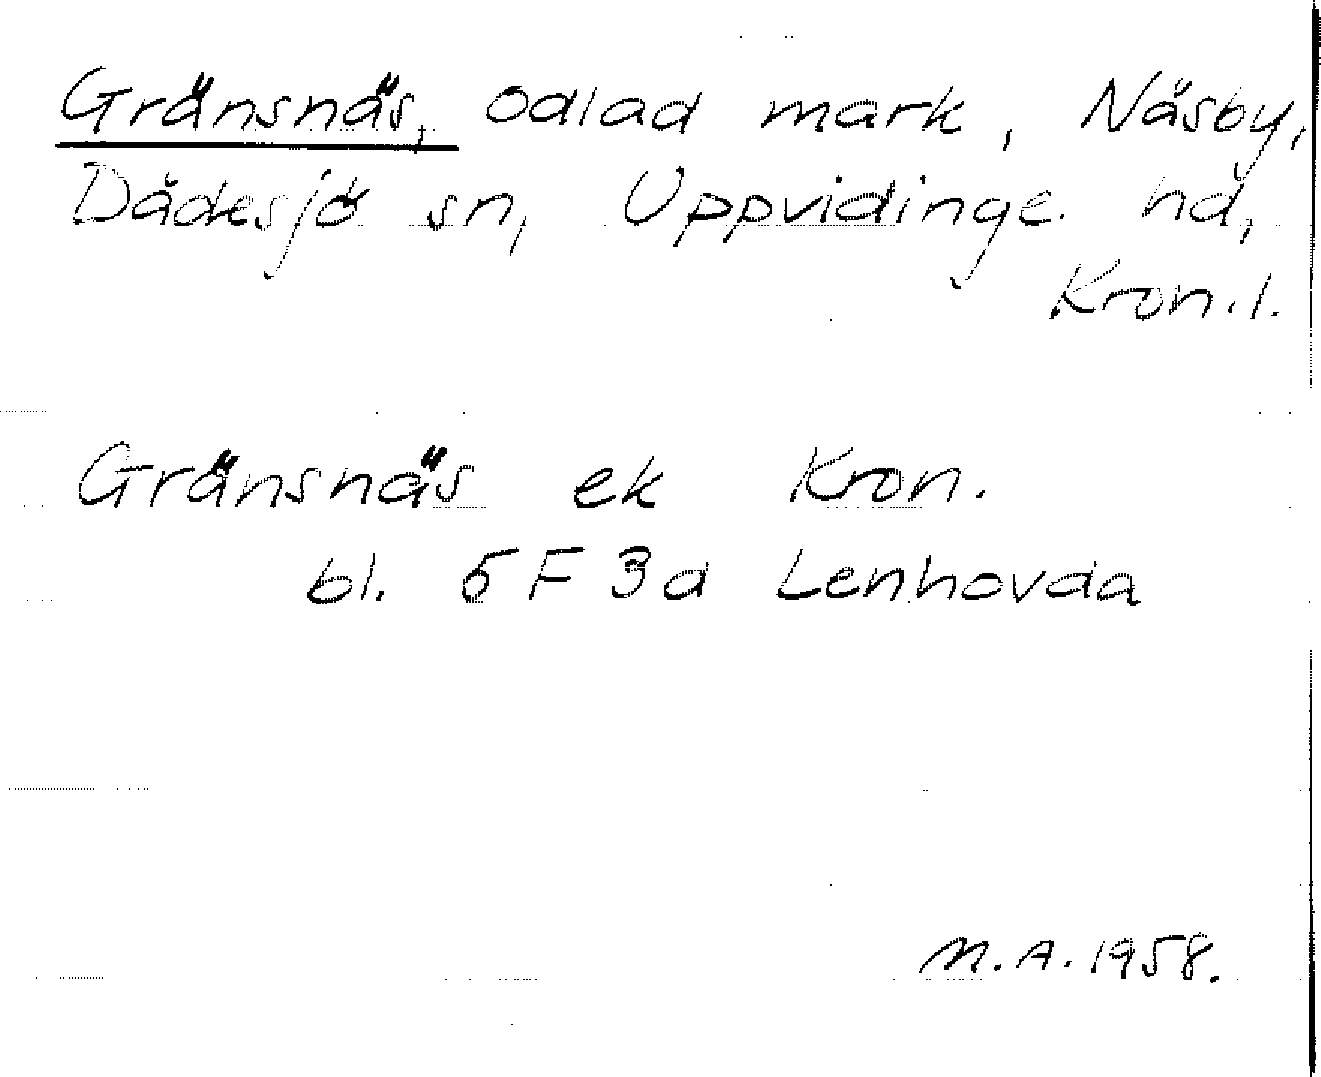 Gränsnäs, odlad mark, Näsby,
Dädesjö sn, Uppvidinge hd,
Kron.l.
Gränsnäs ek Kron.
bl. 5F 3d Lenhovda
M.A. 1958.